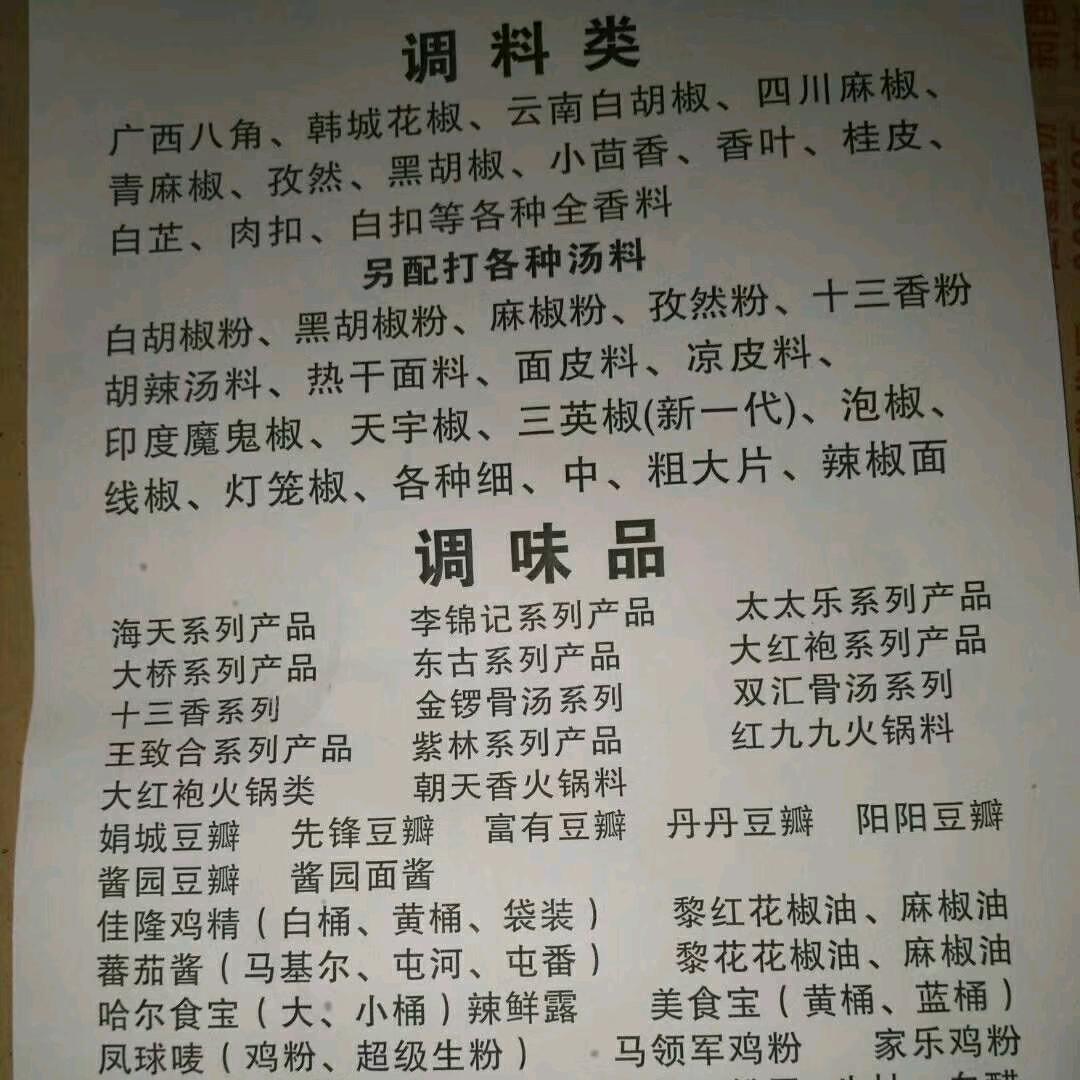 调料类
广西八角、韩城花椒、云南白胡椒、四川麻椒、
青麻椒、孜然、黑胡椒、小茴香、香叶、桂皮、
白芷、肉扣、白扣等各种全香料
另配打各种汤料
白胡椒粉、黑胡椒粉、麻椒粉、孜然粉、十三香粉
胡辣汤料、热干面料、面皮料、凉皮料、
印度魔鬼椒、天宇椒、三英椒(新一代)、泡椒、
线椒、灯笼椒、各种细、中、粗大片、辣椒面
调味品
海天系列产品 李锦记系列产品 太太乐系列产品
大桥系列产品 东古系列产品 大红袍系列产品
十三香系列 金锣骨汤系列 双汇骨汤系列
王致合系列产品 紫林系列产品 红九九火锅料
大红袍火锅类 朝天香火锅料
娟城豆瓣 先锋豆瓣 富有豆瓣 丹丹豆瓣 阳阳豆瓣
酱园豆瓣 酱园面酱
佳隆鸡精（白桶、黄桶、袋装） 黎红花椒油、麻椒油
蕃茄酱（马基尔、屯河、屯番） 黎花花椒油、麻椒油
哈尔食宝（大、小桶）辣鲜露 美食宝（黄桶、蓝桶）
凤球唛（鸡粉、超级生粉） 马领军鸡粉 家乐鸡粉